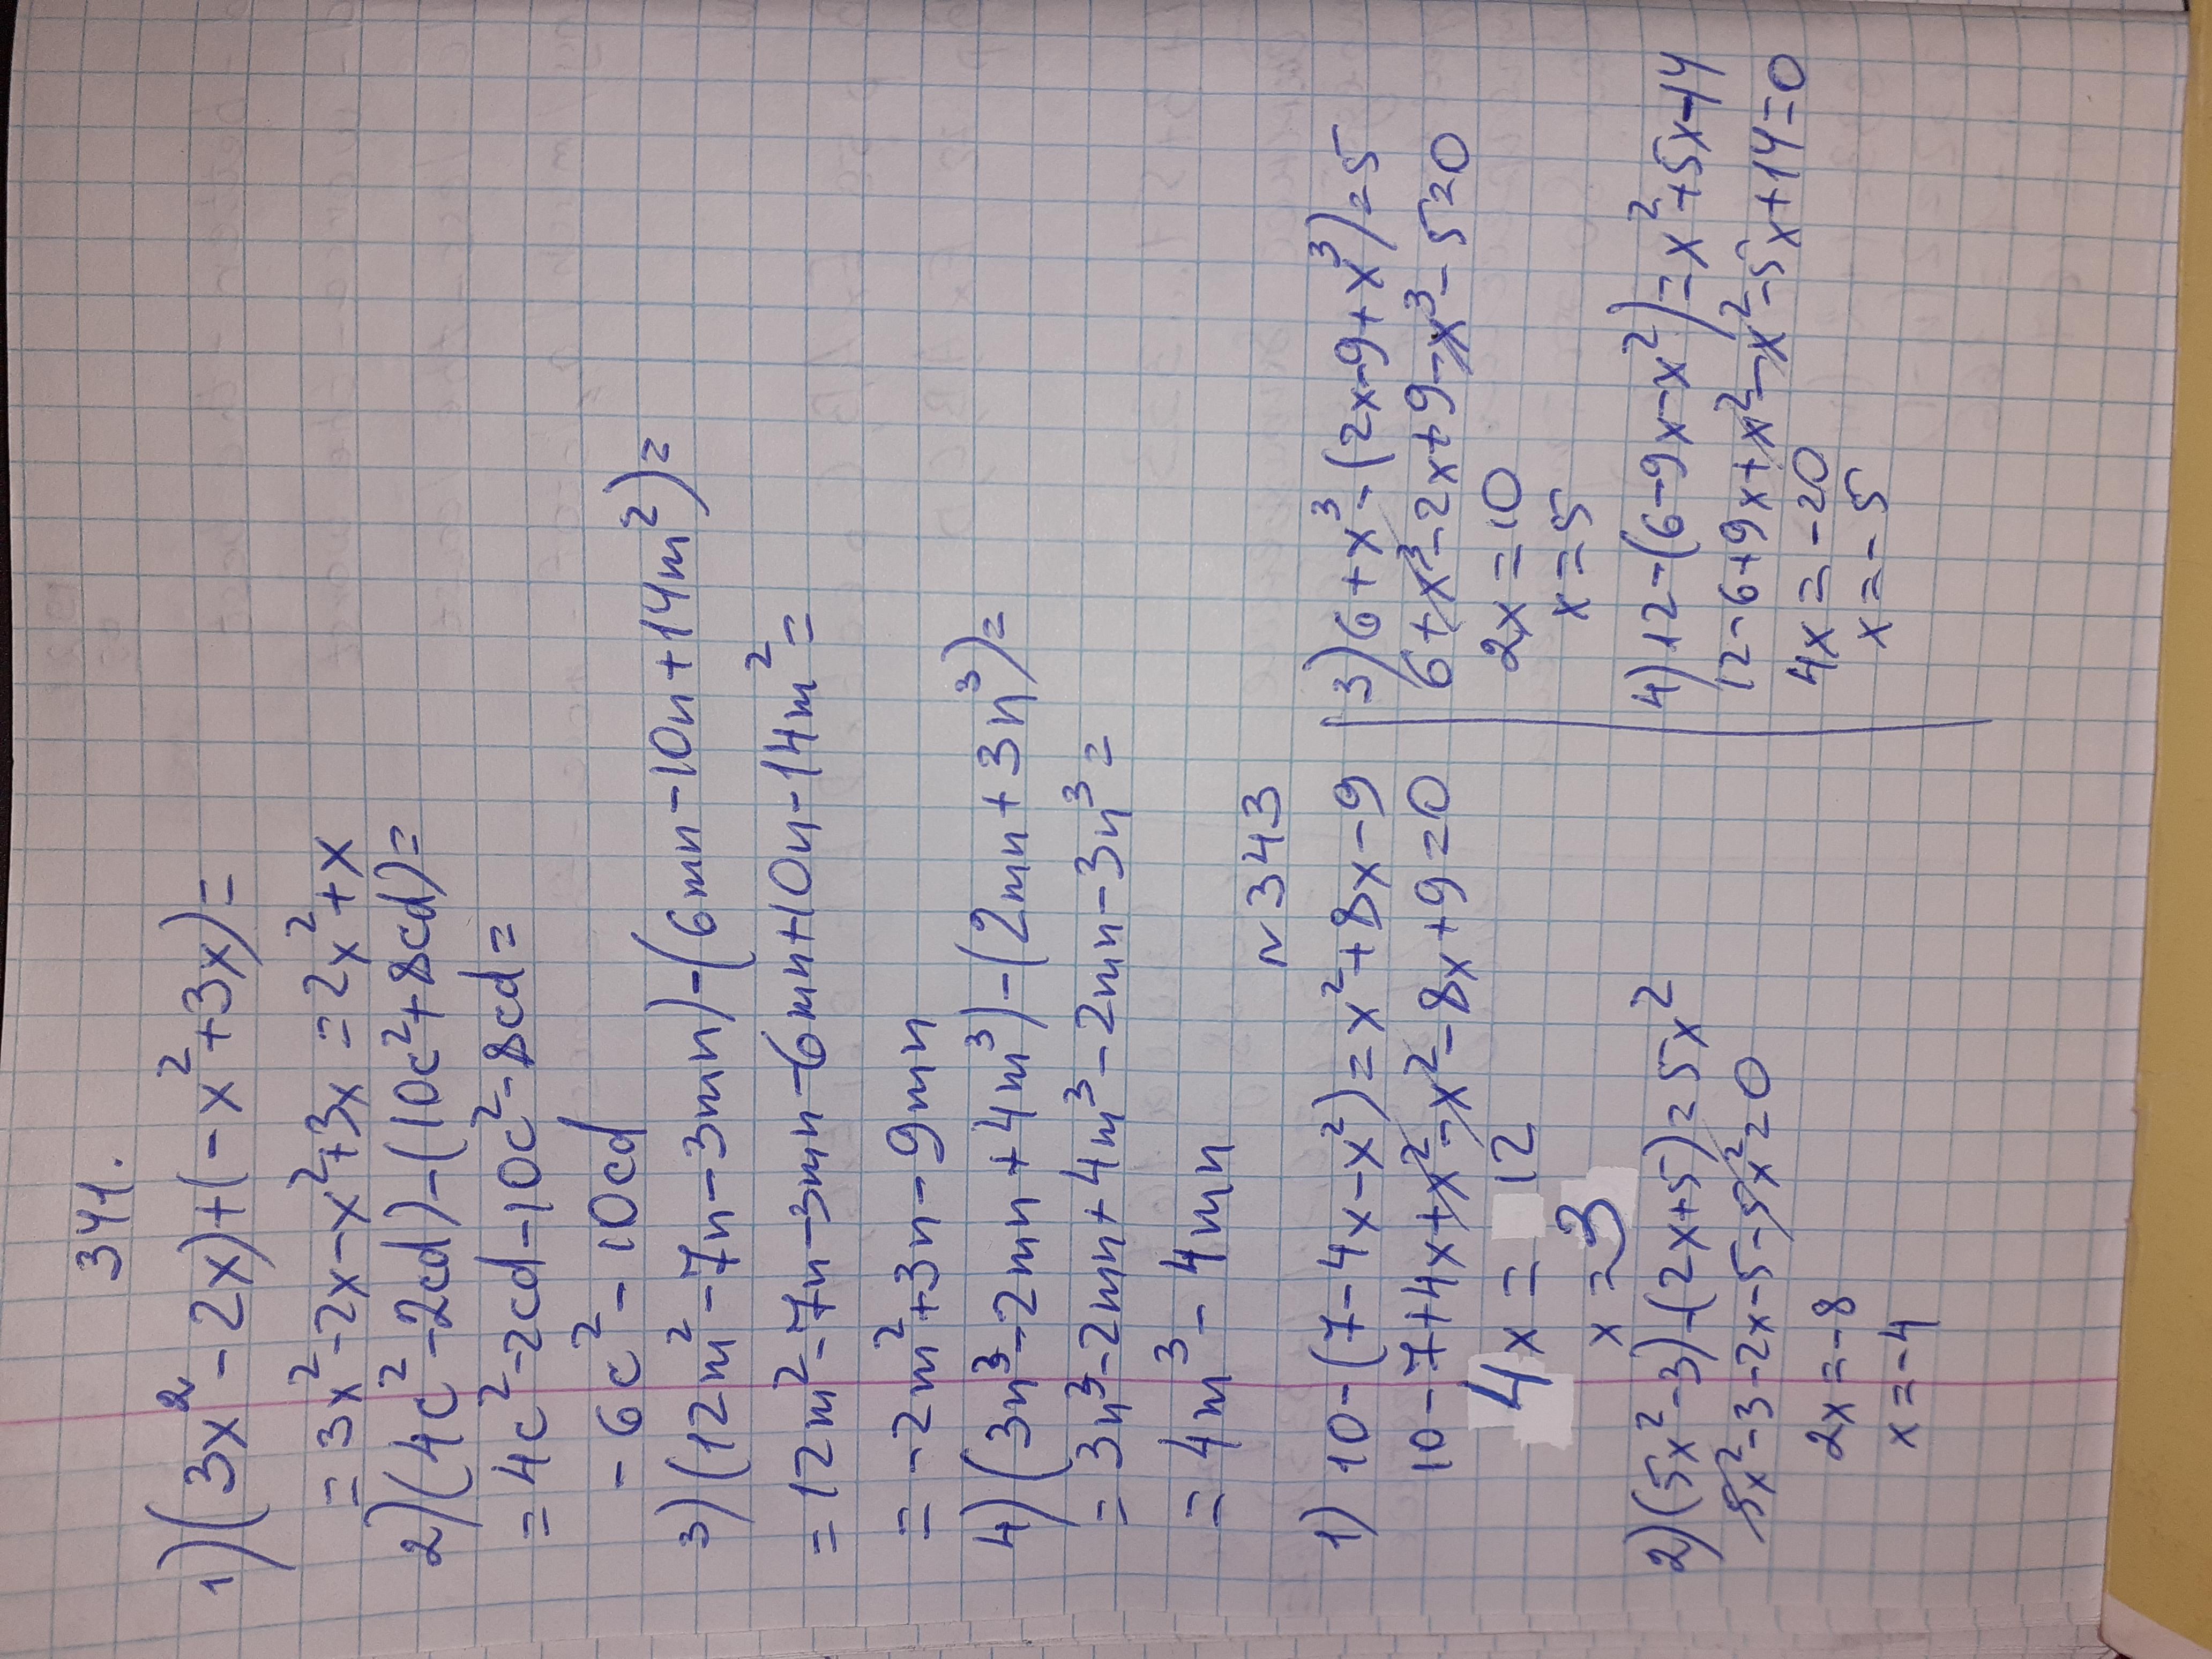 341.
1) (3x² - 2x) + (- x² + 3x) =
= 3x² - 2x - x² + 3x = 2x² + x
2) (4c² - 2cd) - (10c² + 8cd) =
= 4c² - 2cd - 10c² - 8cd =
- 6c² - 10cd
3) (12m² - 7n - 3mn) - (6mn - 10n + 14m²) =
= 12m² - 7n - 3mn - 6mn + 10n - 14m² =
= -2m² + 3n - 9mn
4) (3n³ - 2mn + 4m³) - (2mn + 3n³) =
= 3n³ - 2mn + 4m³ - 2mn - 3n³ =
= 4m³ - 4mn
~343
1) 10 - (7 - 4x - x²) = x² + 8x - 9
10 - 7 + 4x + x² - x² - 8x + 9 = 0
4x = 12
x = 3
2) (5x² - 3) - (2x + 5) = 5x²
5x² - 3 - 2x - 5 - 5x² = 0
2x = -8
x = -4
3) 6 + x³ - (2x - 9 + x³) = 5
6 + x³ - 2x + 9 - x³ - 5 = 0
2x = 10
x = 5
4) 12 - (6 - 9x - x²) = x² + 5x - 14
12 - 6 + 9x + x² - x² - 5x + 14 = 0
4x = -20
x = -5